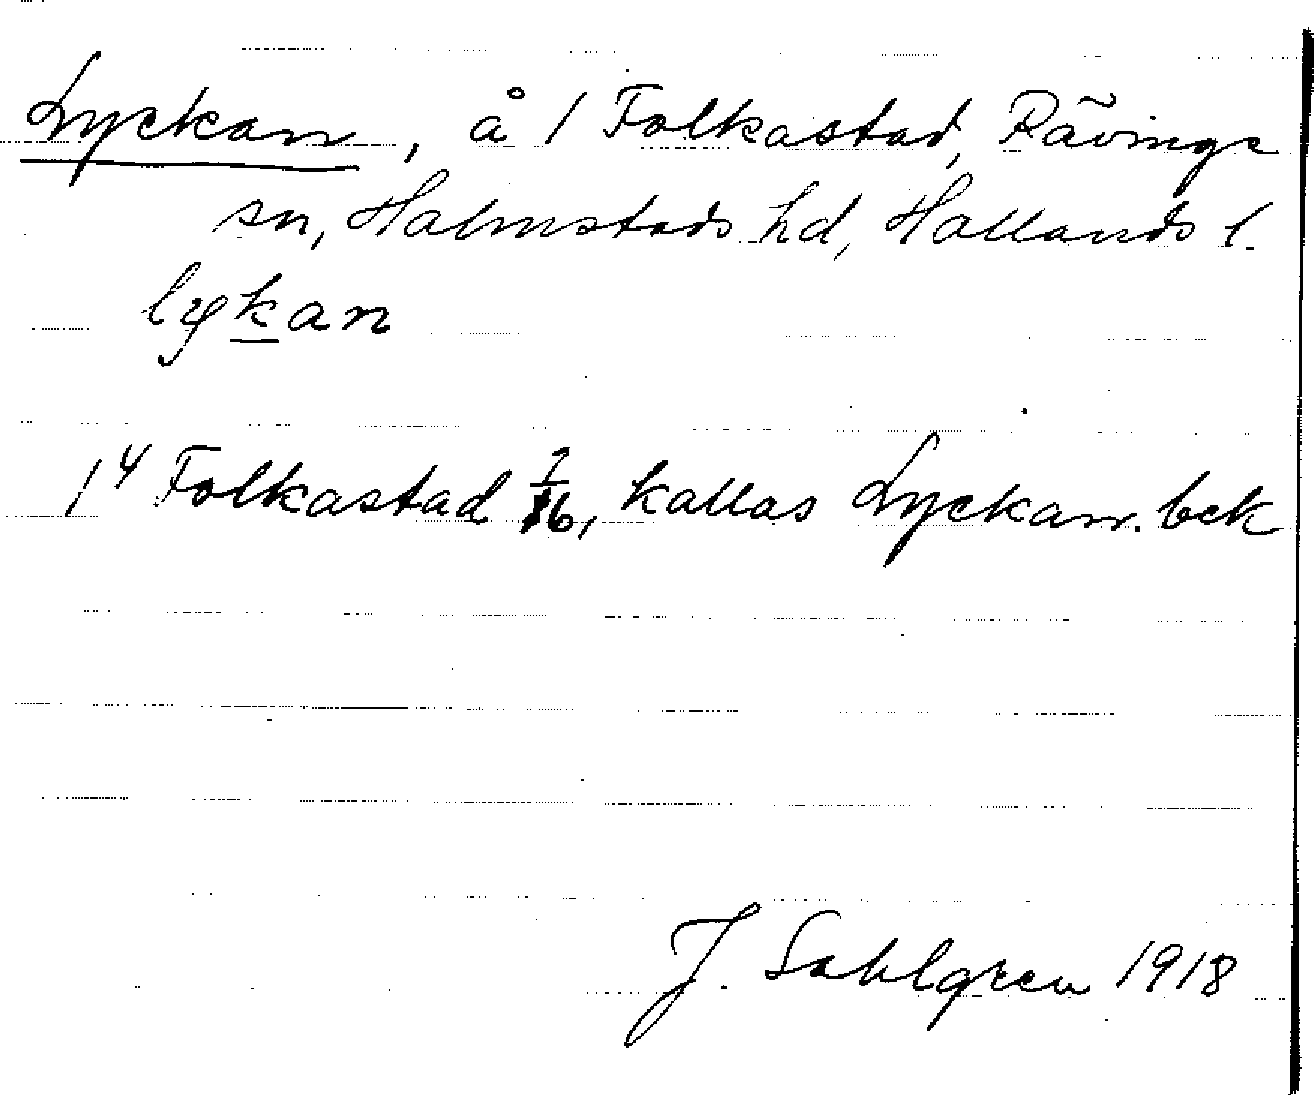 Lyckan, å 1 Folkastad, Rävinge
sn, Halmstads hd, Hallands l.
lykan
1⁴ Folkastad 7/16, kallas Lyckan. bek
J. Sahlgren 1918